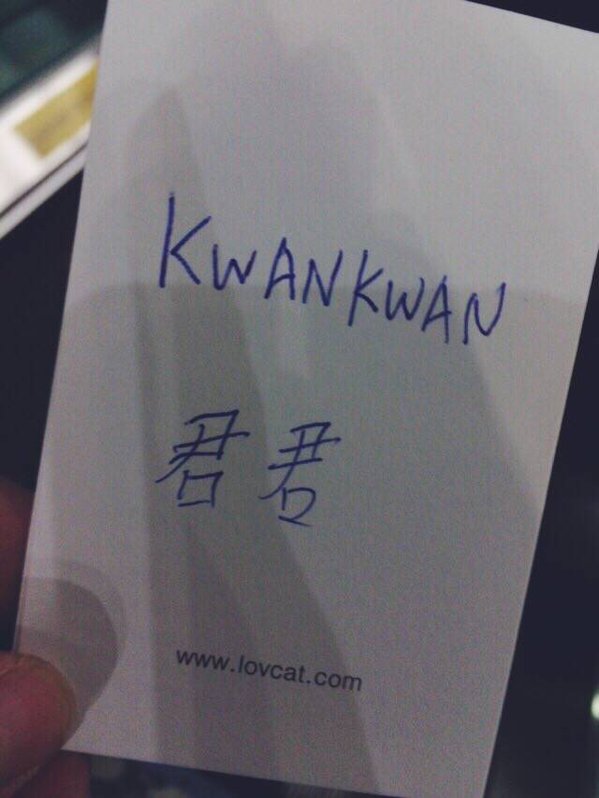 KWANKWAN
君君
www.lovcat.com